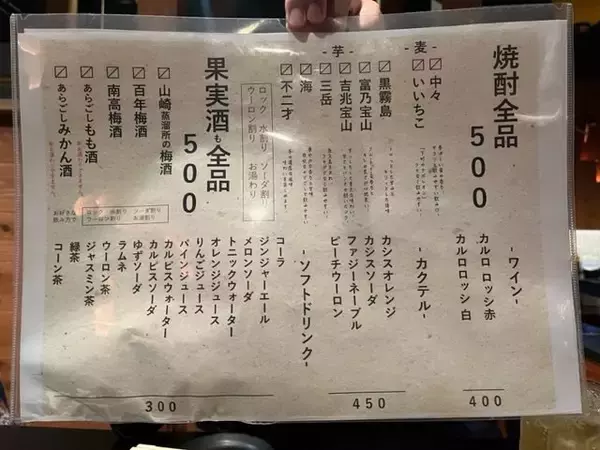 焼酎全品
500
-麦-
☑ 中々
☑ いいちこ
-芋-
☑ 黒霧島
☑ 富乃宝山
☑ 吉兆宝山
☑ 三岳
☑ 海
☑ 不二才
ロック 水割り ソーダ割り
ウーロン割り お湯わり
果実酒も全品
500
☑ 山崎蒸溜所の梅酒
☑ 百年梅酒
☑ 南高梅酒
☑ あらごしもも酒
☑ あらごしみかん酒
お好きな
飲み方で
ロック 水割り ソーダ割り
ウーロン割り お湯割り
-ワイン-
カルロ ロッシ 赤
カルロロッシ 白
400
-カクテル-
カシスオレンジ
カシスソーダ
ファジーネーブル
ピーチウーロン
450
-ソフトドリンク-
コーラ
ジンジャーエール
メロンソーダ
トニックウォーター
オレンジジュース
りんごジュース
パインジュース
カルピスウォーター
カルピスソーダ
ゆずソーダ
ラムネ
ウーロン茶
ジャスミン茶
緑茶
コーン茶
300